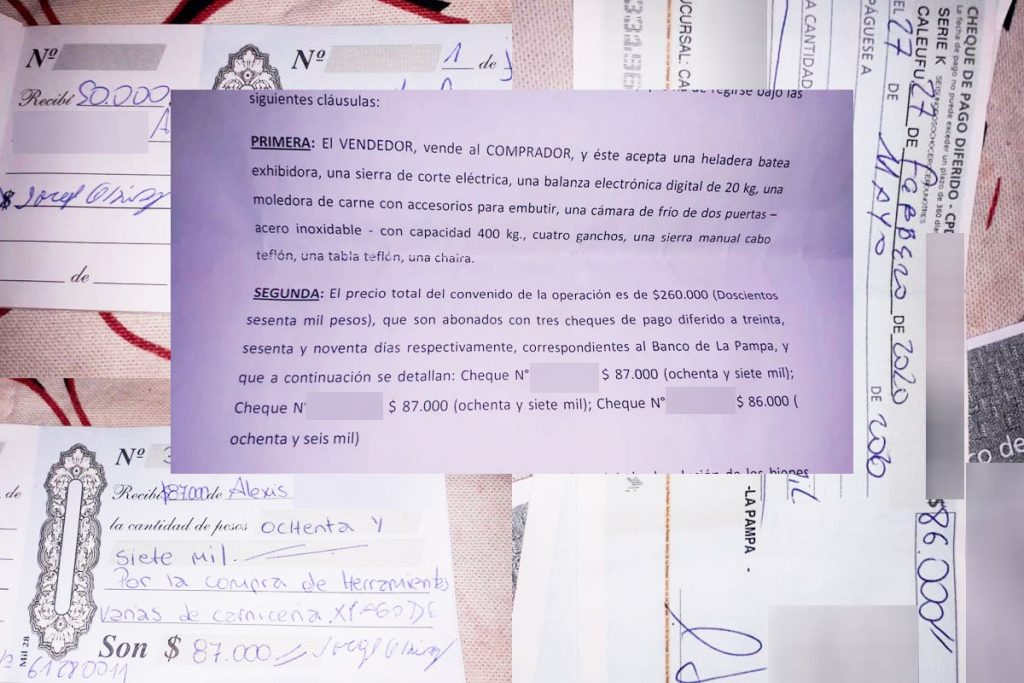 Nº
Recibí 80.000
$
de
Nº 1 de
siguientes cláusulas:
regirse bajo las
PRIMERA: El VENDEDOR, vende al COMPRADOR, y éste acepta una heladera batea
exhibidora, una sierra de corte eléctrica, una balanza electrónica digital de 20 kg, una
moledora de carne con accesorios para embutir, una cámara de frio de dos puertas –
acero inoxidable - con capacidad 400 kg., cuatro ganchos, una sierra manual cabo
teflón, una tabla teflón, una chaira.
SEGUNDA: El precio total del convenido de la operación es de $260.000 (Doscientos
sesenta mil pesos), que son abonados con tres cheques de pago diferido a treinta,
sesenta y noventa días respectivamente, correspondientes al Banco de La Pampa, y
que a continuación se detallan: Cheque N° $ 87.000 (ochenta y siete mil);
Cheque N° $ 87.000 (ochenta y siete mil); Cheque N° $ 86.000 (
ochenta y seis mil)
CHEQUE DE PAGO DIFERIDO - CPD
La fecha de pago no puede exceder un plazo de 360 días
SERIE K
CALEUFU, 27 DE FEBRERO DE 2020
EL 27 DE MAYO DE 2020
PÁGUESE A
A CANTIDAD
UCURSAL: CAL
$ 86.000//
-LA PAMPA -
de
Nº 3
Recibí $87.000 de Alexis
la cantidad de pesos OCHENTA Y
siete mil.
Por la compra de Herramientas
varias de carnicería. X PAGO DE
Son $ 87.000
61280011